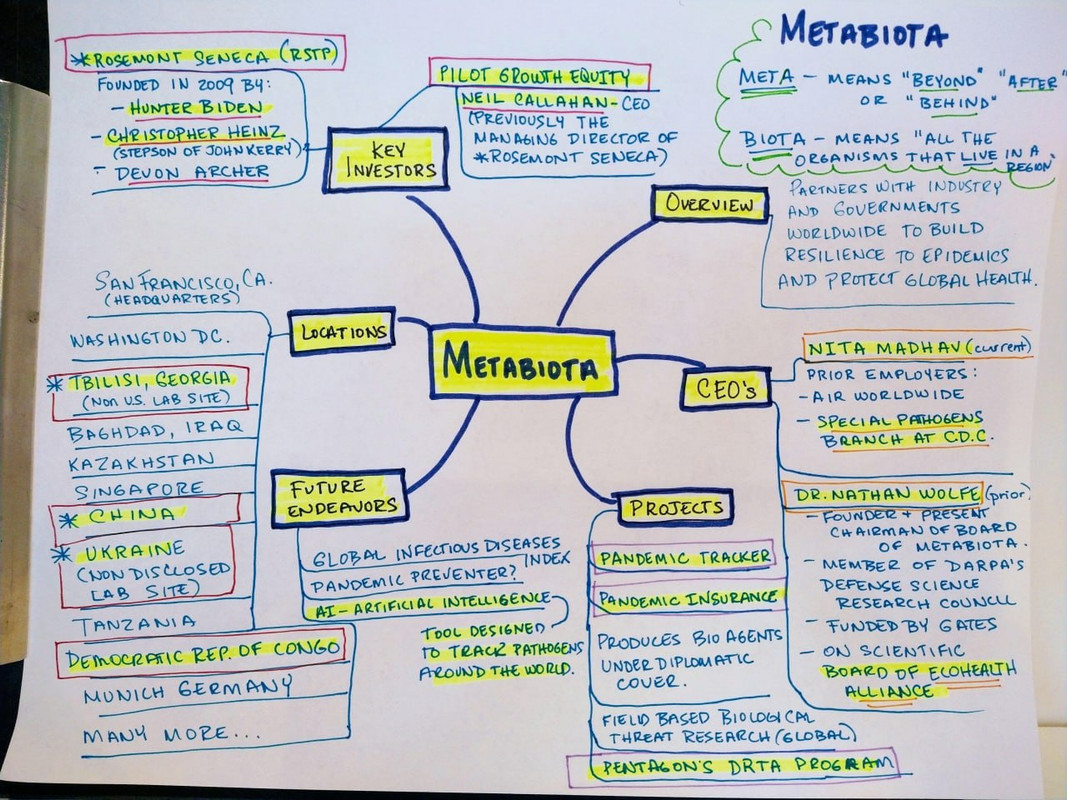 METABIOTA
META - MEANS "BEYOND" "AFTER"
OR "BEHIND"
BIOTA - MEANS "ALL THE
ORGANISMS THAT LIVE IN A
REGION"
*ROSEMONT SENECA (RSTP)
FOUNDED IN 2009 BY:
- HUNTER BIDEN
- CHRISTOPHER HEINZ
(STEPSON OF JOHN KERRY)
- DEVON ARCHER
KEY
INVESTORS
PILOT GROWTH EQUITY
NEIL CALLAHAN - CEO
(PREVIOUSLY THE
MANAGING DIRECTOR OF
*ROSEMONT SENECA)
OVERVIEW
PARTNERS WITH INDUSTRY
AND GOVERNMENTS
WORLDWIDE TO BUILD
RESILIENCE TO EPIDEMICS
AND PROTECT GLOBAL HEALTH.
METABIOTA
LOCATIONS
SAN FRANCISCO, CA.
(HEADQUARTERS)
WASHINGTON DC.
* TBILISI, GEORGIA
(NON U.S. LAB SITE)
BAGHDAD, IRAQ
KAZAKHSTAN
SINGAPORE
* CHINA
* UKRAINE
(NON DISCLOSED
LAB SITE)
TANZANIA
DEMOCRATIC REP. OF CONGO
MUNICH GERMANY
MANY MORE...
CEO'S
NITA MADHAV (current)
PRIOR EMPLOYERS:
- AIR WORLDWIDE
- SPECIAL PATHOGENS
BRANCH AT C.D.C.
DR. NATHAN WOLFE (prior)
- FOUNDER + PRESENT
CHAIRMAN OF BOARD
OF METABIOTA.
- MEMBER OF DARPA'S
DEFENSE SCIENCE
RESEARCH COUNCIL
- FUNDED BY GATES
- ON SCIENTIFIC
BOARD OF ECOHEALTH
ALLIANCE
FUTURE
ENDEAVORS
GLOBAL INFECTIOUS DISEASES
INDEX
PANDEMIC PREVENTER?
AI - ARTIFICIAL INTELLIGENCE
TOOL DESIGNED
TO TRACK PATHOGENS
AROUND THE WORLD.
PROJECTS
PANDEMIC TRACKER
PANDEMIC INSURANCE
PRODUCES BIO AGENTS
UNDER DIPLOMATIC
COVER.
FIELD BASED BIOLOGICAL
THREAT RESEARCH (GLOBAL)
PENTAGON'S DRTA PROGRAM